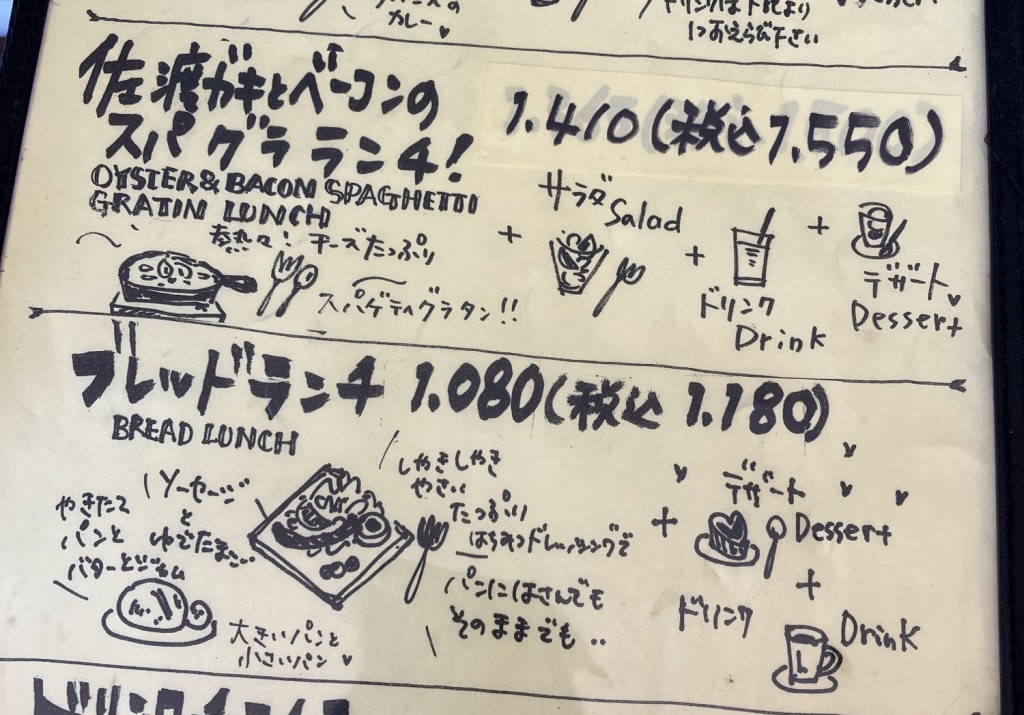 カレー
におえらび下さい
佐渡ガキとベーコンの
スパグラランチ!
1.410(税込1.550)
OYSTER&BACON SPAGHETTI
GRATIN LUNCH
熱々!チーズたっぷり
スパゲティグラタン!!
+
サラダ
Salad
+
ドリンク
Drink
+
デザート
Dessert
ブレッドランチ 1.080(税込 1.180)
BREAD LUNCH
やきたて
パンと
バターとジャム
ソーセージ
と
ゆでたまご
大きいパンと
小さいパン
しゃきしゃき
やさい
たっぷり
はちみつドレッシングで
パンにはさんでも
そのままでも..
+
デザート
Dessert
+
ドリンク
Drink